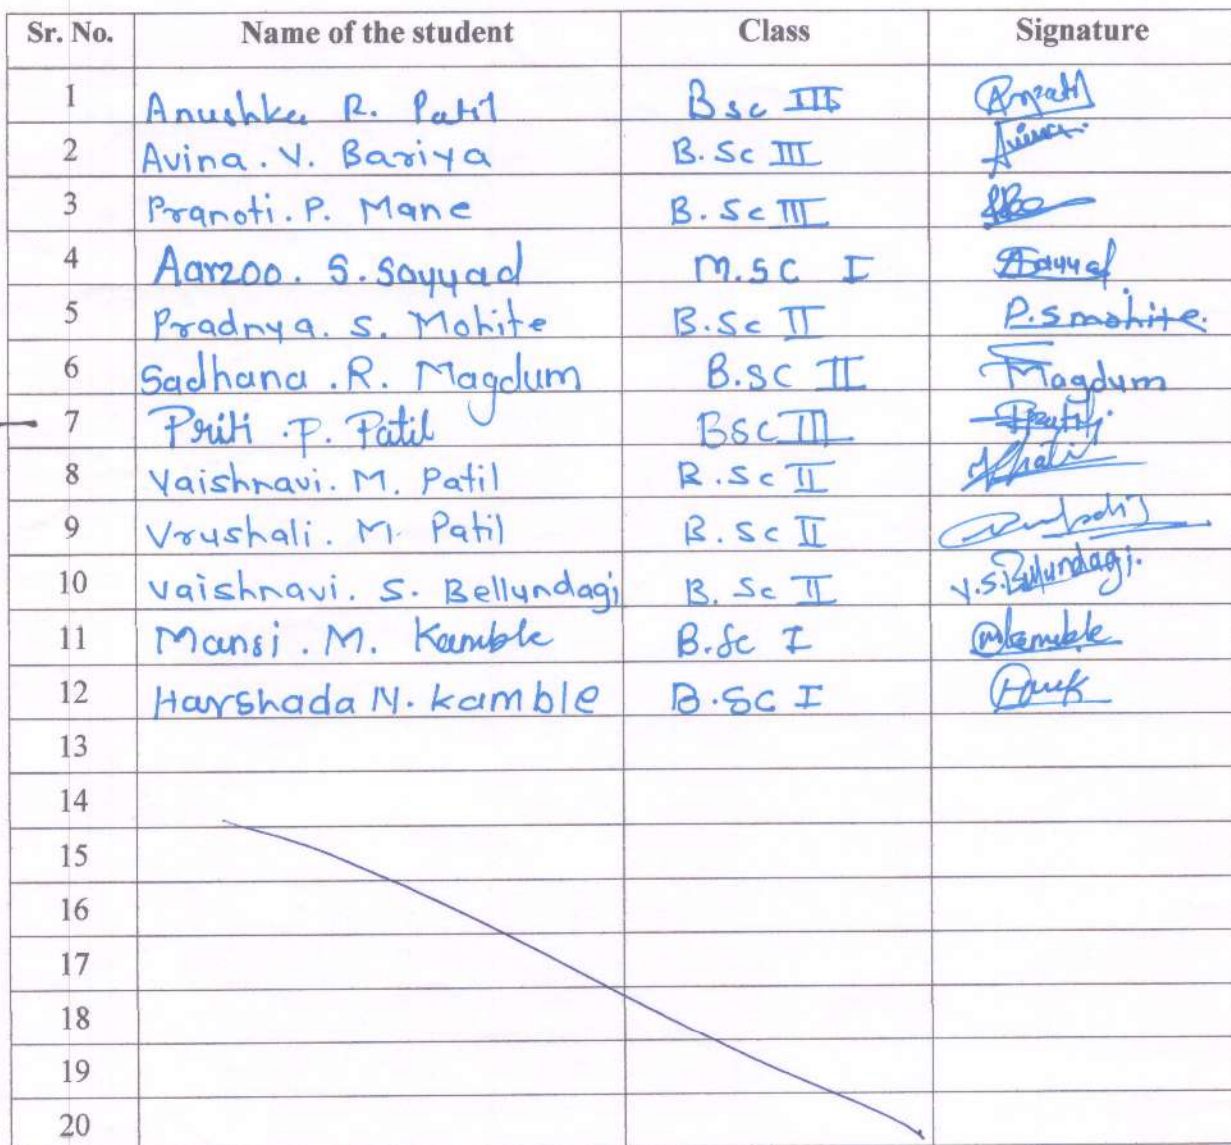 Sr. No. Name of the student Class Signature
1 Anushka R. Patil Bsc III
2 Avina. V. Bariya B. Sc III
3 Pranoti. P. Mane B. Sc III
4 Aarzoo. S. Sayyad M.SC I Sayyad
5 Pradnya. S. Mohite B.Sc II P.S mohite.
6 Sadhana .R. Magdum B.SC II Magdum
7 Priti .P. Patil BSC III
8 Vaishnavi. M. Patil B.Sc II
9 Vrushali. M. Patil B. Sc II
10 Vaishnavi. S. Bellundagi B. Sc II V.S.Bellundagi.
11 Mansi . M. Kamble B.Sc I
12 Harshada N. Kamble B.SC I
13
14
15
16
17
18
19
20